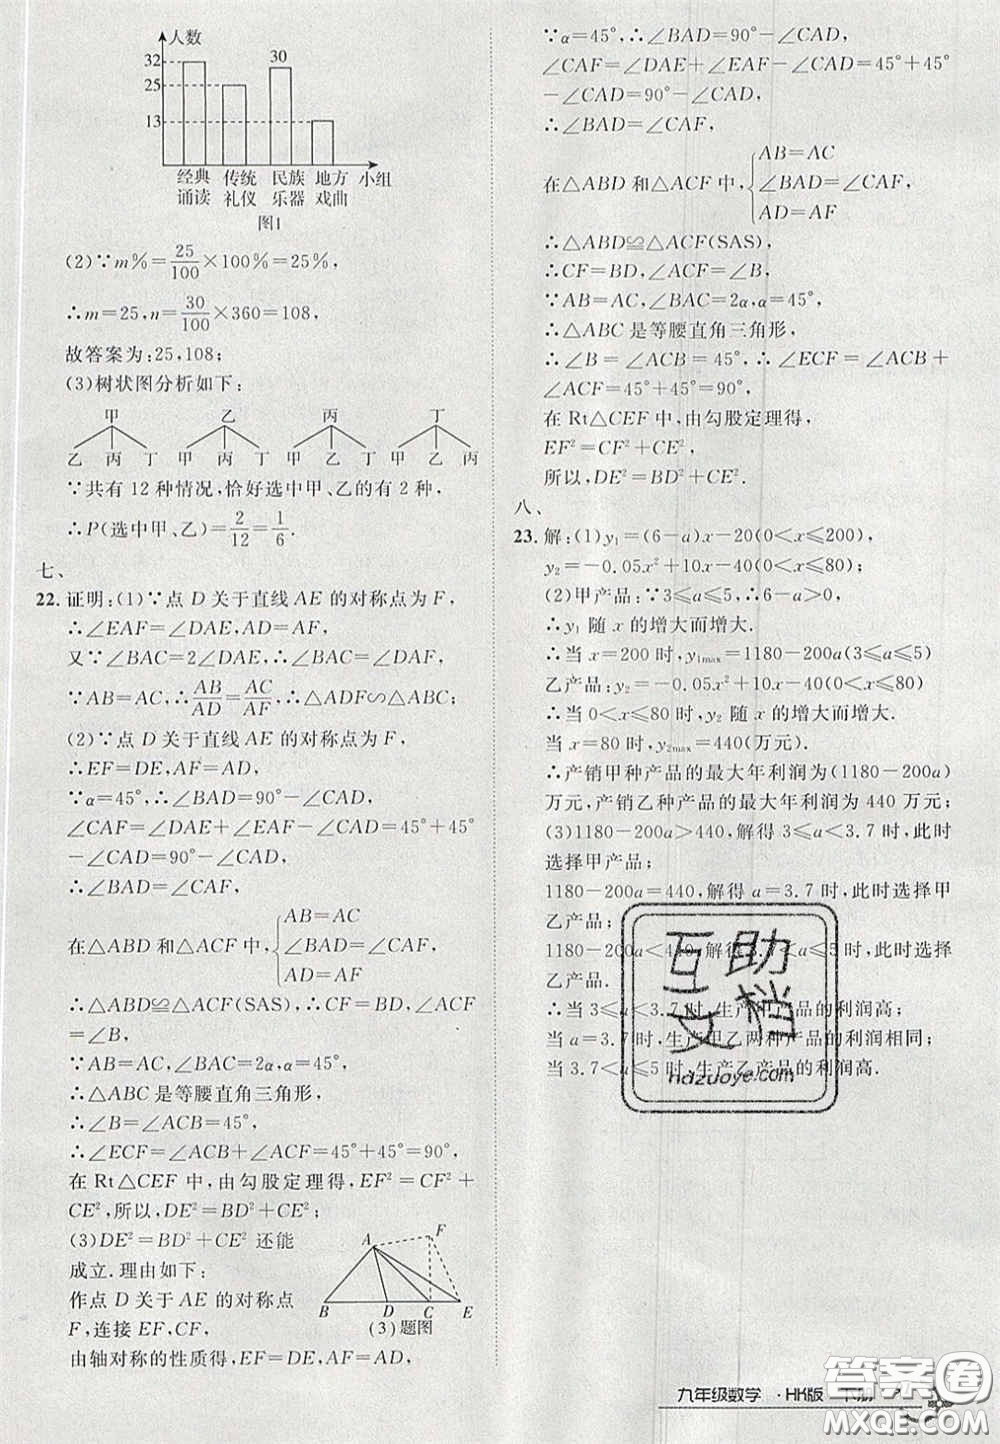 人数
32
25
13
30
经典 传统 民族 地方 小组
诵读 礼仪 乐器 戏曲
图1
(2)∵m%=25/100×100%=25%,
∴m=25,n=30/100×360=108,
故答案为:25,108;
(3)树状图分析如下:
甲 乙 丙 丁
乙 丙 丁 甲 丙 丁 甲 乙 丁 甲 乙 丙
∵共有 12 种情况,恰好选中甲、乙的有 2 种,
∴P(选中甲、乙)=2/12=1/6.
七、
22.证明:(1)∵点 D 关于直线 AE 的对称点为 F,
∴∠EAF=∠DAE,AD=AF,
又∵∠BAC=2∠DAE,∴∠BAC=∠DAF,
∵AB=AC,∴AB/AD=AC/AF,∴△ADF∽△ABC;
(2)∵点 D 关于直线 AE 的对称点为 F,
∴EF=DE,AF=AD,
∵α=45°,∴∠BAD=90°-∠CAD,
∠CAF=∠DAE+∠EAF-∠CAD=45°+45°
-∠CAD=90°-∠CAD,
∴∠BAD=∠CAF,
在△ABD 和△ACF 中,{AB=AC
∠BAD=∠CAF,
AD=AF
∴△ABD≌△ACF(SAS),∴CF=BD,∠ACF
=∠B,
∵AB=AC,∠BAC=2α,α=45°,
∴△ABC 是等腰直角三角形,
∴∠B=∠ACB=45°,
∴∠ECF=∠ACB+∠ACF=45°+45°=90°,
在 Rt△CEF 中,由勾股定理得,EF²=CF²+
CE²,所以,DE²=BD²+CE²;
(3)DE²=BD²+CE² 还能
成立.理由如下:
作点 D 关于 AE 的对称点
F,连接 EF,CF,
由轴对称的性质得,EF=DE,AF=AD,
A F
B D C E
(3)题图
∵α=45°,∴∠BAD=90°-∠CAD,
∠CAF=∠DAE+∠EAF-∠CAD=45°+45°
-∠CAD=90°-∠CAD,
∴∠BAD=∠CAF,
在△ABD 和△ACF 中,{AB=AC
∠BAD=∠CAF,
AD=AF
∴△ABD≌△ACF(SAS)
∴CF=BD,∠ACF=∠B,
∵AB=AC,∠BAC=2α,α=45°,
∴△ABC 是等腰直角三角形,
∴∠B=∠ACB=45°,∴∠ECF=∠ACB+
∠ACF=45°+45°=90°,
在 Rt△CEF 中,由勾股定理得,
EF²=CF²+CE²,
所以,DE²=BD²+CE².
八、
23.解:(1)y₁=(6-a)x-20(0<x≤200),
y₂=-0.05x²+10x-40(0<x≤80);
(2)甲产品:∵3≤a≤5,∴6-a>0,
∴y₁ 随 x 的增大而增大.
∴当 x=200 时,y₁max=1180-200a(3≤a≤5)
乙产品:y₂=-0.05x²+10x-40(0<x≤80)
∴当 0<x≤80 时,y₂ 随 x 的增大而增大.
当 x=80 时,y₂max=440(万元).
∴产销甲种产品的最大年利润为(1180-200a)
万元,产销乙种产品的最大年利润为 440 万元;
(3)1180-200a>440,解得 3≤a<3.7 时,此时
选择甲产品;
1180-200a=440,解得 a=3.7 时,此时选择甲
乙产品;
1180-200a<440,解得 3.7<a≤5 时,此时选择
乙产品.
∴当 3≤a<3.7 时,生产甲产品的利润高;
当 a=3.7 时,生产甲乙两种产品的利润相同;
当 3.7<a≤5 时,生产乙产品的利润高.
互助
文档
hdzuoye.com
九年级数学 ·HK版 下册
答案圈
MXQE.COM